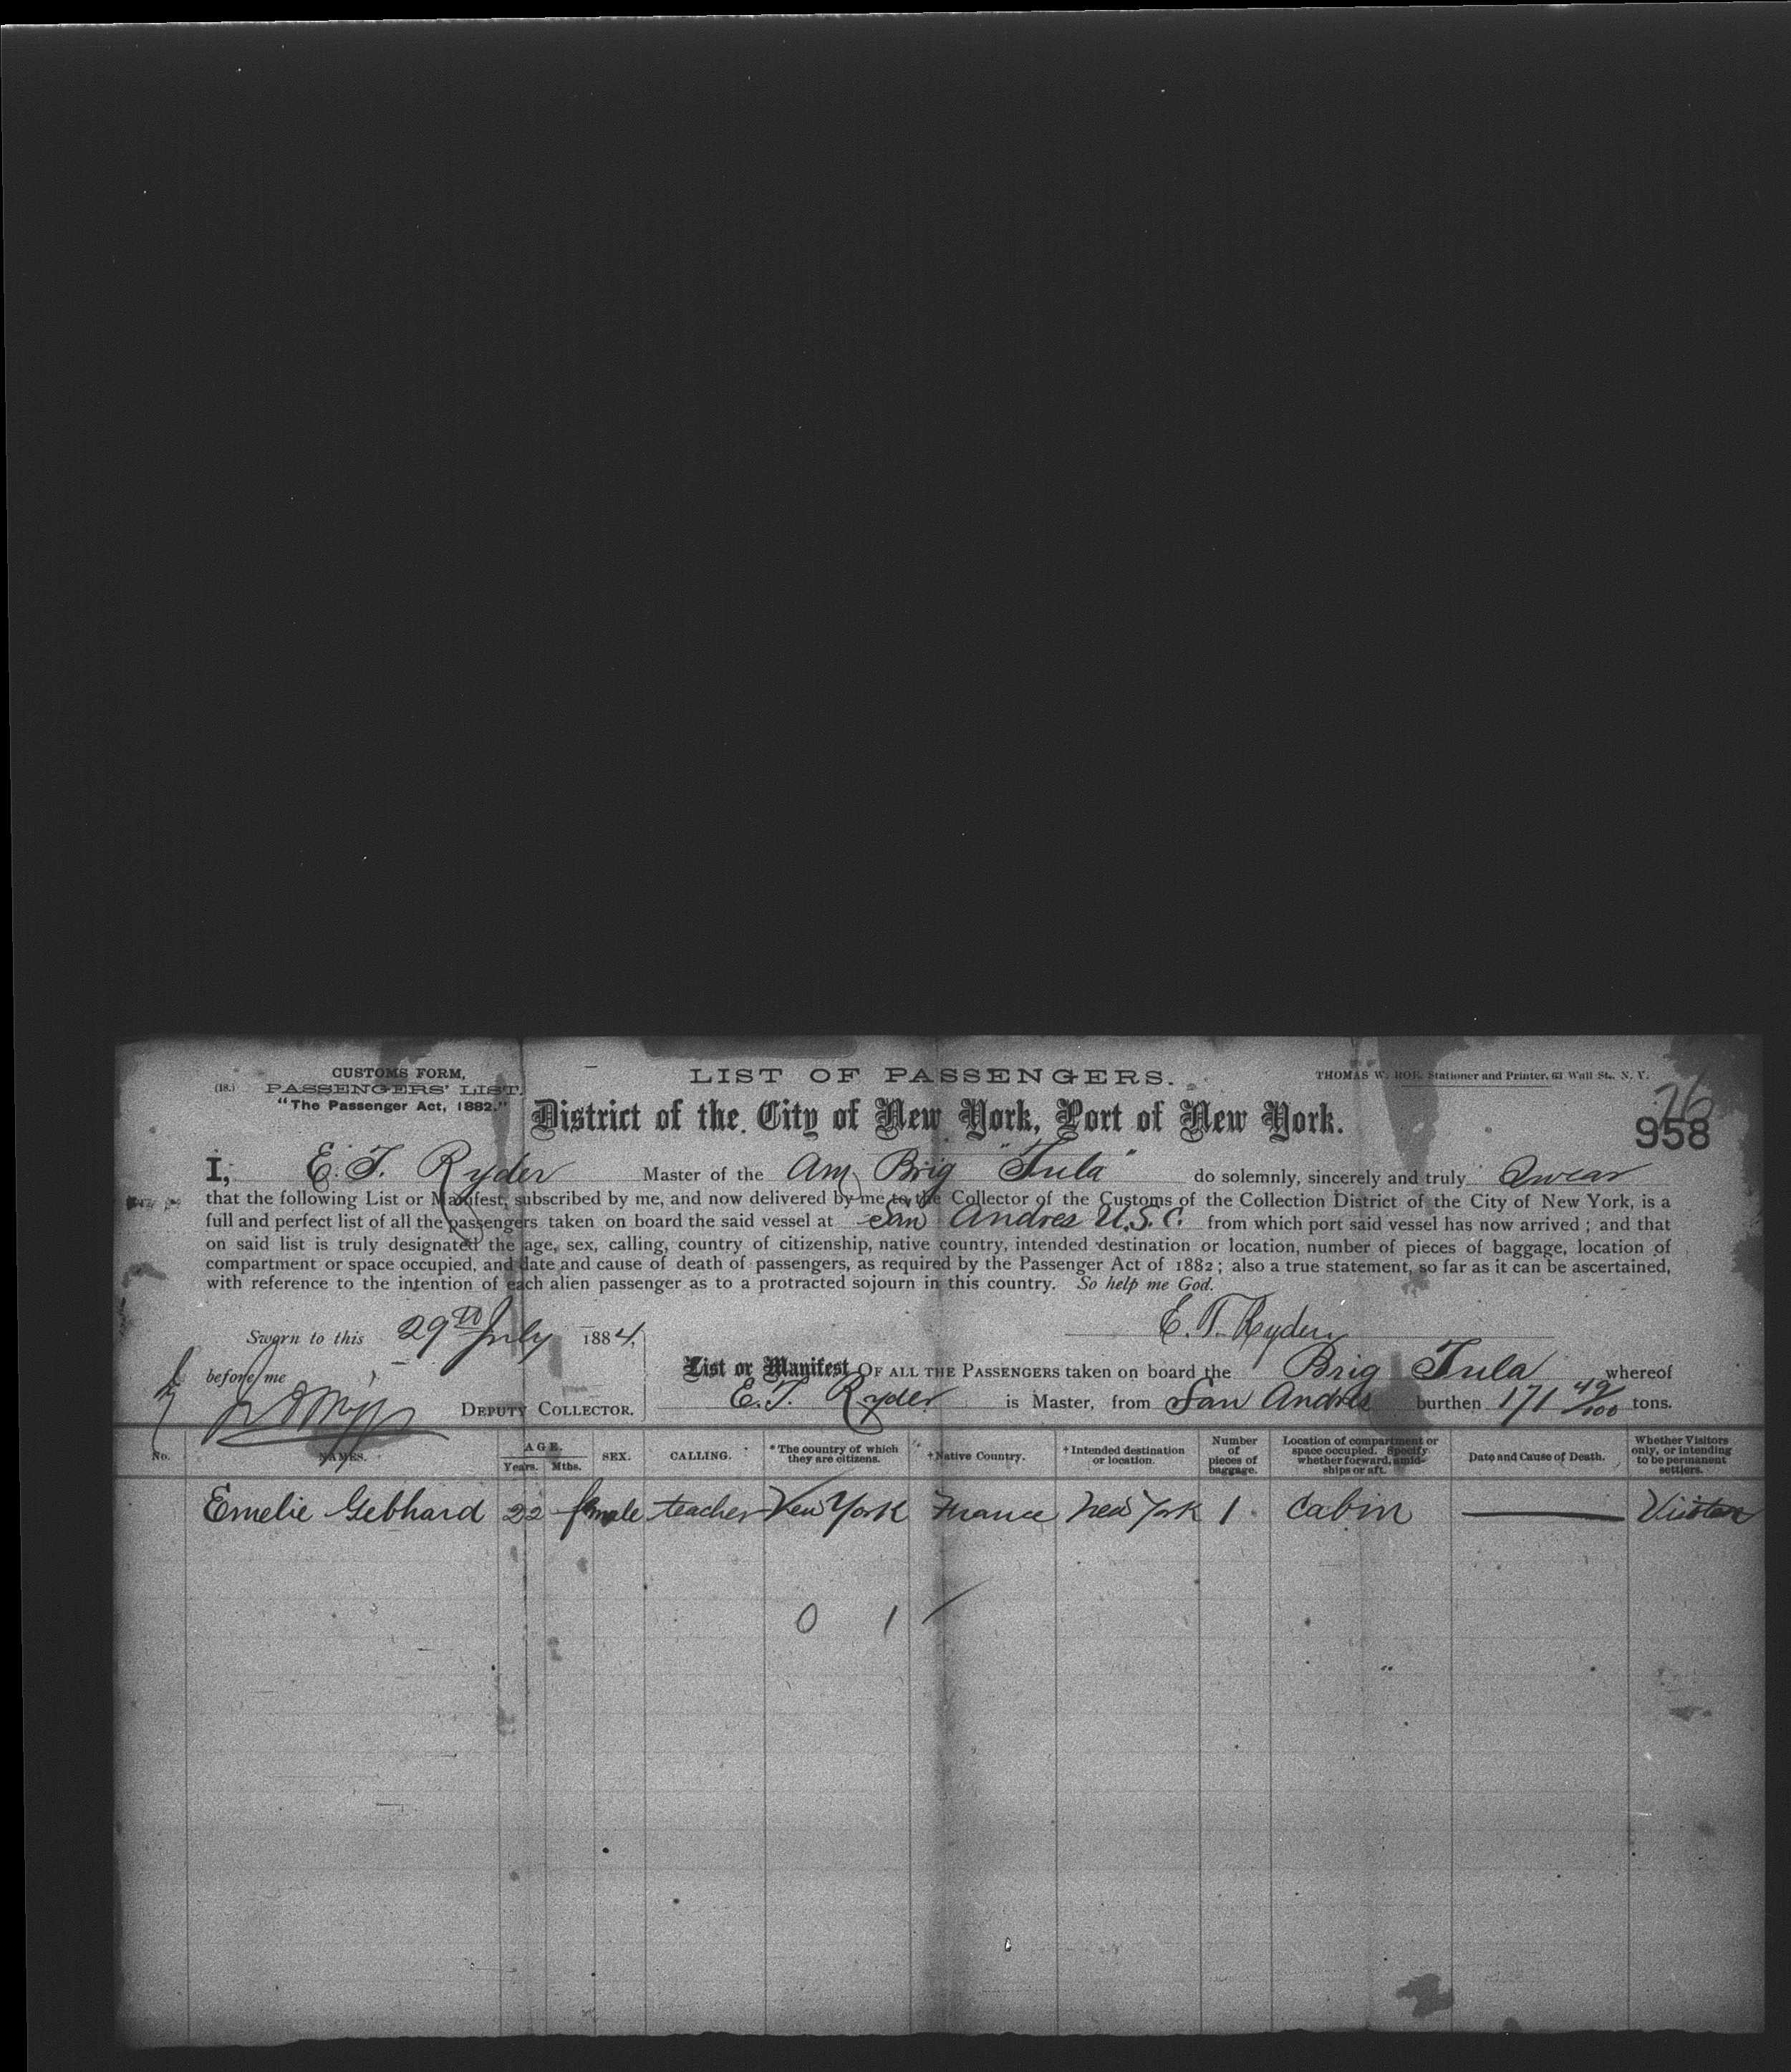 (18.)
CUSTOMS FORM,
PASSENGERS' LIST.
"The Passenger Act, 1882."
LIST OF PASSENGERS.
THOMAS W. ROE, Stationer and Printer, 63 Wall St., N. Y.
District of the City of New York, Port of New York.
26
958
I, E. T. Ryder Master of the Am Brig "Tula" do solemnly, sincerely and truly Swear
that the following List or Manifest, subscribed by me, and now delivered by me to the Collector of the Customs of the Collection District of the City of New York, is a
full and perfect list of all the passengers taken on board the said vessel at San Andres U.S.C. from which port said vessel has now arrived; and that
on said list is truly designated the age, sex, calling, country of citizenship, native country, intended destination or location, number of pieces of baggage, location of
compartment or space occupied, and date and cause of death of passengers, as required by the Passenger Act of 1882; also a true statement, so far as it can be ascertained,
with reference to the intention of each alien passenger as to a protracted sojourn in this country. So help me God.
Sworn to this 29th July 1884,
E. T. Ryder
before me
DEPUTY COLLECTOR.
List or Manifest OF ALL THE PASSENGERS taken on board the Brig Tula whereof
E. T. Ryder is Master, from San Andres burthen 171 49/100 tons.
No. NAMES. AGE. Years. Mths. SEX. CALLING. *The country of which they are citizens. †Native Country. †Intended destination or location. Number of pieces of baggage. Location of compartment or space occupied. Specify whether forward, amidships or aft. Date and Cause of Death. Whether Visitors only, or intending to be permanent settlers.
Emelie Gebhard 22 female teacher New York France New York 1 Cabin —— Visitor
0 1 /